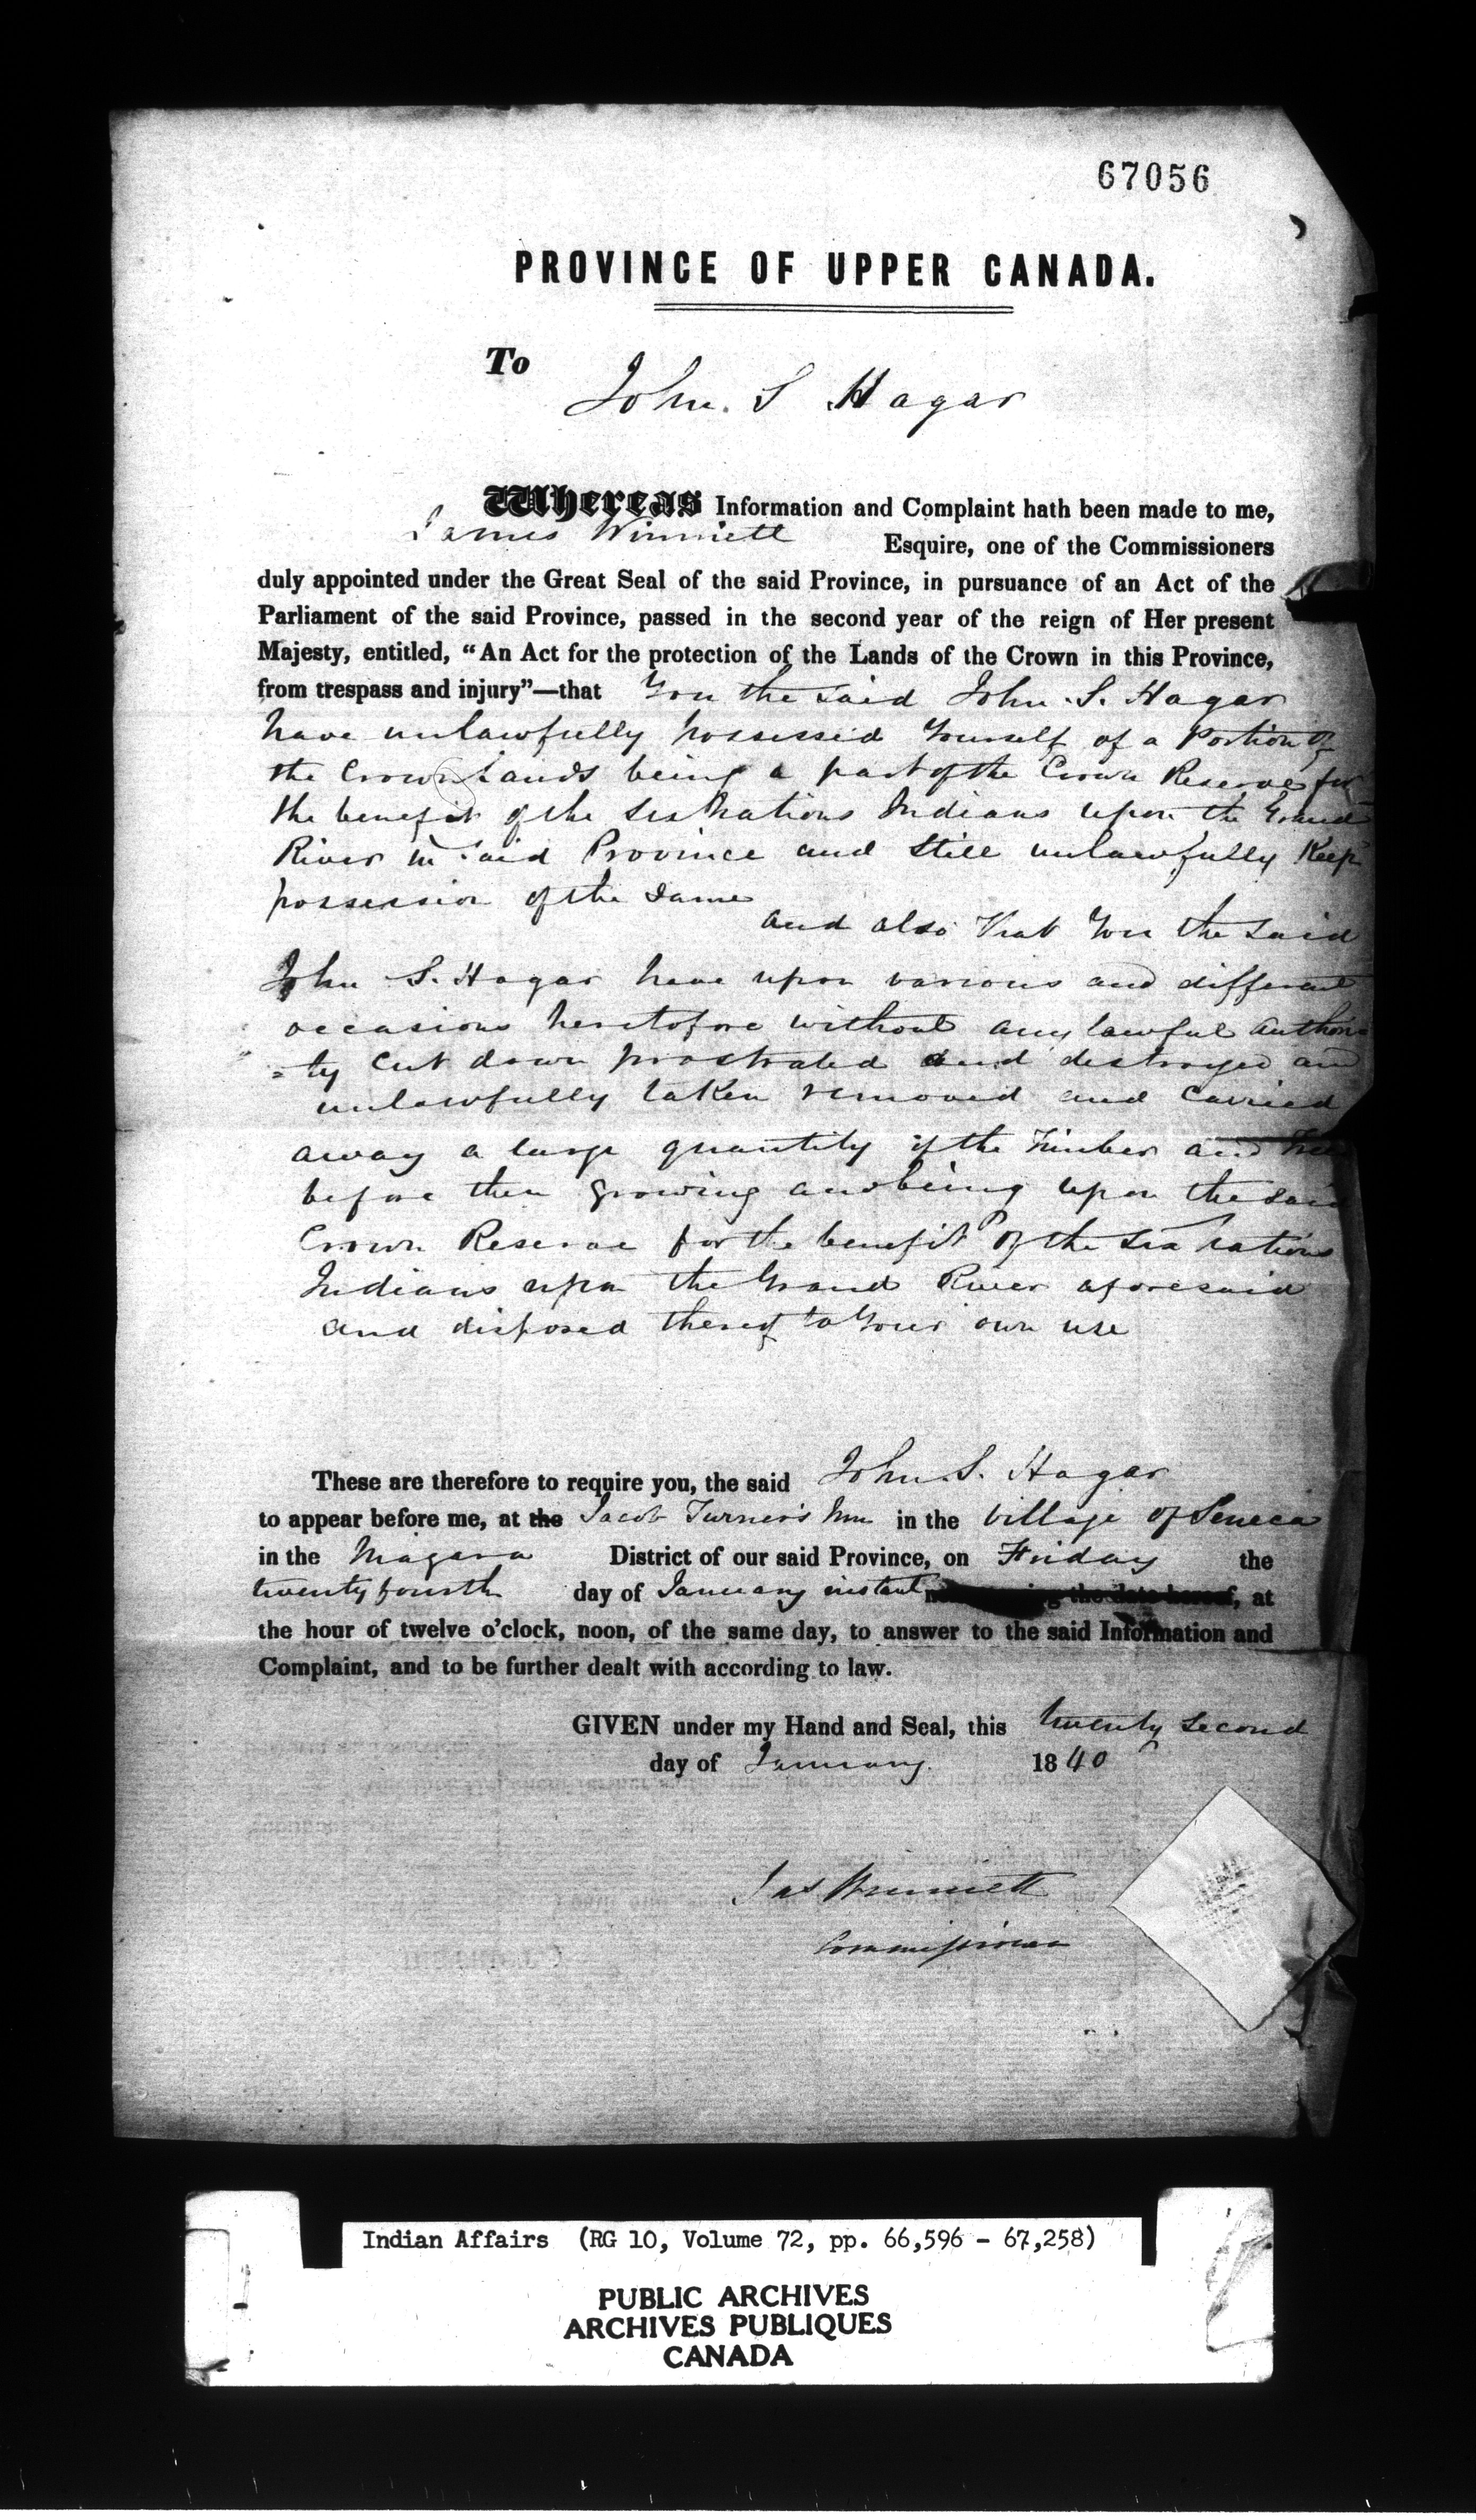 67056
PROVINCE OF UPPER CANADA.
To
John. S Hagar
Whereas Information and Complaint hath been made to me,
James Winniett Esquire, one of the Commissioners
duly appointed under the Great Seal of the said Province, in pursuance of an Act of the
Parliament of the said Province, passed in the second year of the reign of Her present
Majesty, entitled, “An Act for the protection of the Lands of the Crown in this Province,
from trespass and injury”—that You the said John. S. Hagar
have unlawfully possessed Yourself of a Portion of
the Crown Lands being a part of the Crown Reserve for
the benefit of the Six Nations Indians upon the Grand
River in Said Province and Still unlawfully Keep
possession of the Same
and also that You the Said
John S. Hagar have upon various and different
occasions heretofore without any lawful authori
=ty Cut down prostrated and destroyed and
unlawfully taken removed and Carried
away a large quantity of the Timber and Trees
before then growing and being upon the said
Crown Reserve for the benefit of the Six Nations
Indians upon the Grand River aforesaid
and disposed thereof to Your own use
These are therefore to require you, the said John. S. Hagar
to appear before me, at the Jacob Turner's Inn in the Village of Seneca
in the Niagara District of our said Province, on Friday the
twenty fourth day of January instant, at
the hour of twelve o’clock, noon, of the same day, to answer to the said Information and
Complaint, and to be further dealt with according to law.
GIVEN under my Hand and Seal, this twenty second
day of January. 1840
Jas Winniett
Commissioner
Indian Affairs (RG 10, Volume 72, pp. 66,596 - 67,258)
PUBLIC ARCHIVES
ARCHIVES PUBLIQUES
CANADA